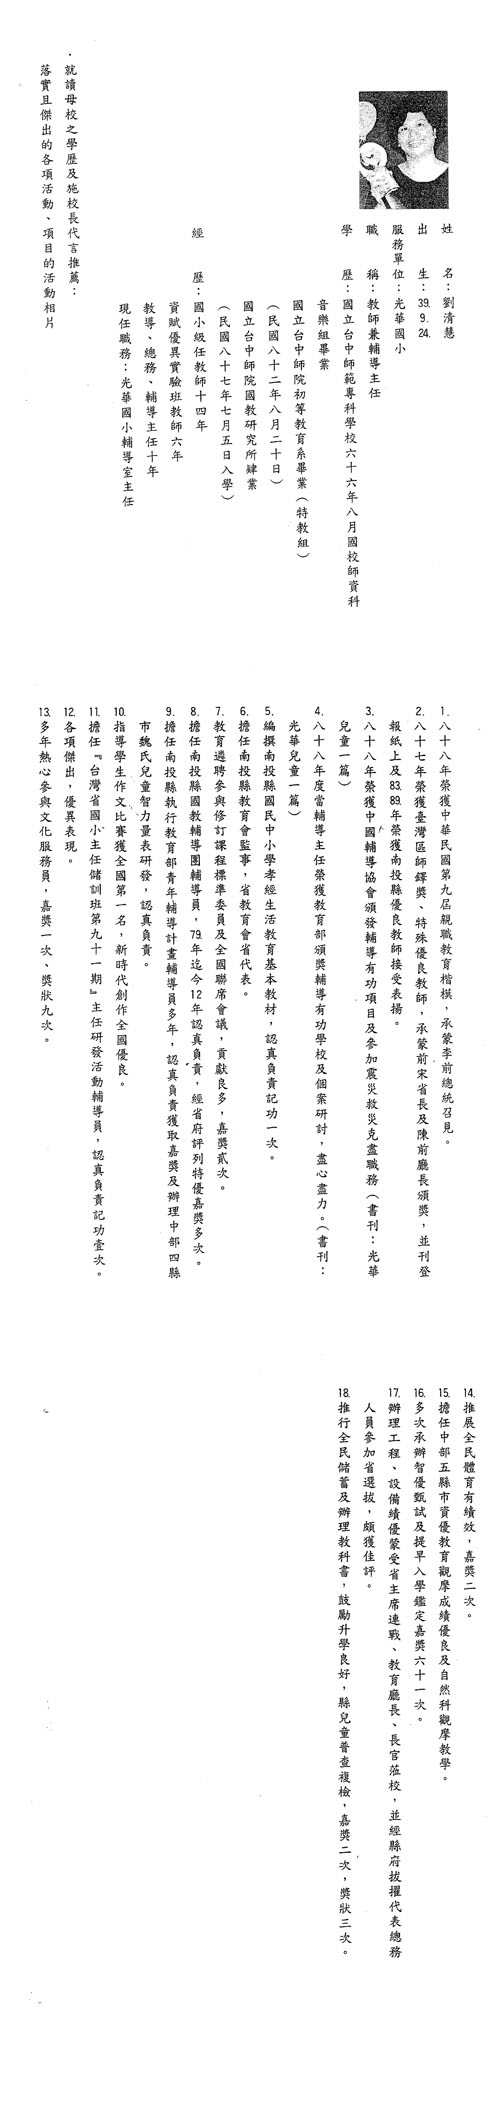 姓　　名：劉清慧
出　　生：39. 9. 24.
服務單位：光華國小
職　　稱：教師兼輔導主任
學　　歷：國立台中師範專科學校六十六年八月國校師資科
音樂組畢業
國立台中師院初等教育系畢業（特教組）
（民國八十二年八月二十日）
國立台中師院國教研究所肄業
（民國八十七年七月五日入學）
經　　歷：國小級任教師十四年
資賦優異實驗班教師六年
教導、總務、輔導主任十年
現任職務：光華國小輔導室主任
．就讀母校之學歷及施校長代言推薦：
落實且傑出的各項活動、項目的活動相片
1. 八十八年榮獲中華民國第九屆親職教育楷模，承蒙李前總統召見。
2. 八十七年榮獲臺灣區師鐸獎、特殊優良教師，承蒙前宋省長及陳前廳長頒獎，並刊登
報紙上及83.89.年榮獲南投縣優良教師接受表揚。
3. 八十八年榮獲中國輔導協會頒發輔導有功項目及參加震災救災克盡職務（書刊：光華
兒童一篇）
4. 八十八年度當輔導主任榮獲教育部頒獎輔導有功學校及個案研討，盡心盡力。（書刊：
光華兒童一篇）
5. 編撰南投縣國民中小學孝經生活教育基本教材，認真負責記功一次。
6. 擔任南投縣教育會監事，省教育會省代表。
7. 教育遴聘參與修訂課程標準委員及全國聯席會議，貢獻良多，嘉獎貳次。
8. 擔任南投縣國教輔導團輔導員，79.年迄今12年認真負責，經省府評列特優嘉獎多次。
9. 擔任南投縣執行教育部青年輔導計畫輔導員多年，認真負責獲取嘉獎及辦理中部四縣
市魏氏兒童智力量表研發，認真負責。
10. 指導學生作文比賽獲全國第一名，新時代創作全國優良。
11. 擔任『台灣省國小主任儲訓班第九十一期』主任研發活動輔導員，認真負責記功壹次。
12. 各項傑出，優異表現。
13. 多年熱心參與文化服務員，嘉獎一次、獎狀九次。
14. 推展全民體育有績效，嘉獎二次。
15. 擔任中部五縣市資優教育觀摩成績優良及自然科觀摩教學。
16. 多次承辦智優甄試及提早入學鑑定嘉獎六十一次。
17. 辦理工程、設備績優蒙受省主席連戰、教育廳長、長官蒞校，並經縣府拔擢代表總務
人員參加省選拔，頗獲佳評。
18. 推行全民儲蓄及辦理教科書，鼓勵升學良好，縣兒童普查複檢，嘉獎二次，獎狀三次。